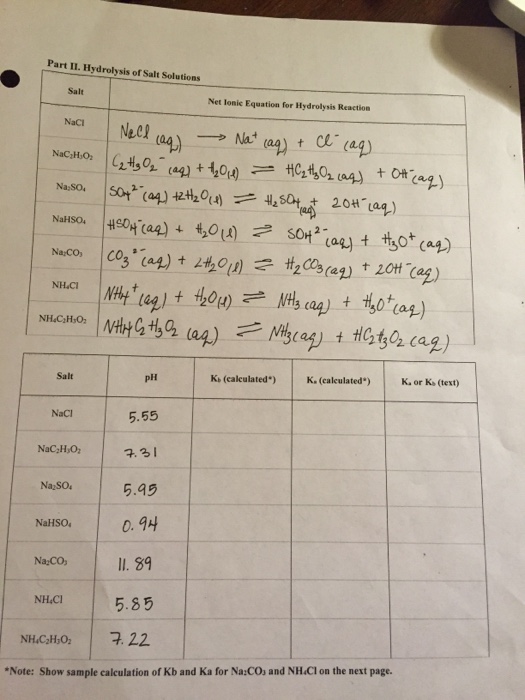 Part II. Hydrolysis of Salt Solutions
Salt Net Ionic Equation for Hydrolysis Reaction
NaCl NaCl (aq) → Na⁺ (aq) + Cl⁻ (aq)
NaC₂H₃O₂ C₂H₃O₂⁻ (aq) + H₂O(l) ⇌ HC₂H₃O₂ (aq) + OH⁻ (aq)
Na₂SO₄ SO4²⁻ (aq) + 2H₂O(l) ⇌ H₂SO4 (aq) + 2OH⁻ (aq)
NaHSO₄ HSO4⁻ (aq) + H₂O(l) ⇌ SO4²⁻ (aq) + H₃O⁺ (aq)
Na₂CO₃ CO₃²⁻ (aq) + 2H₂O(l) ⇌ H₂CO₃ (aq) + 2OH⁻ (aq)
NH₄Cl NH4⁺ (aq) + H₂O(l) ⇌ NH₃ (aq) + H₃O⁺ (aq)
NH₄C₂H₃O₂ NH4C₂H₃O₂ (aq) ⇌ NH₃ (aq) + HC₂H₃O₂ (aq)
Salt pH K_b (calculated*) K_a (calculated*) K_a or K_b (text)
NaCl 5.55
NaC₂H₃O₂ 7.31
Na₂SO₄ 5.95
NaHSO₄ 0.94
Na₂CO₃ 11.89
NH₄Cl 5.85
NH₄C₂H₃O₂ 7.22
*Note: Show sample calculation of Kb and Ka for Na₂CO₃ and NH₄Cl on the next page.